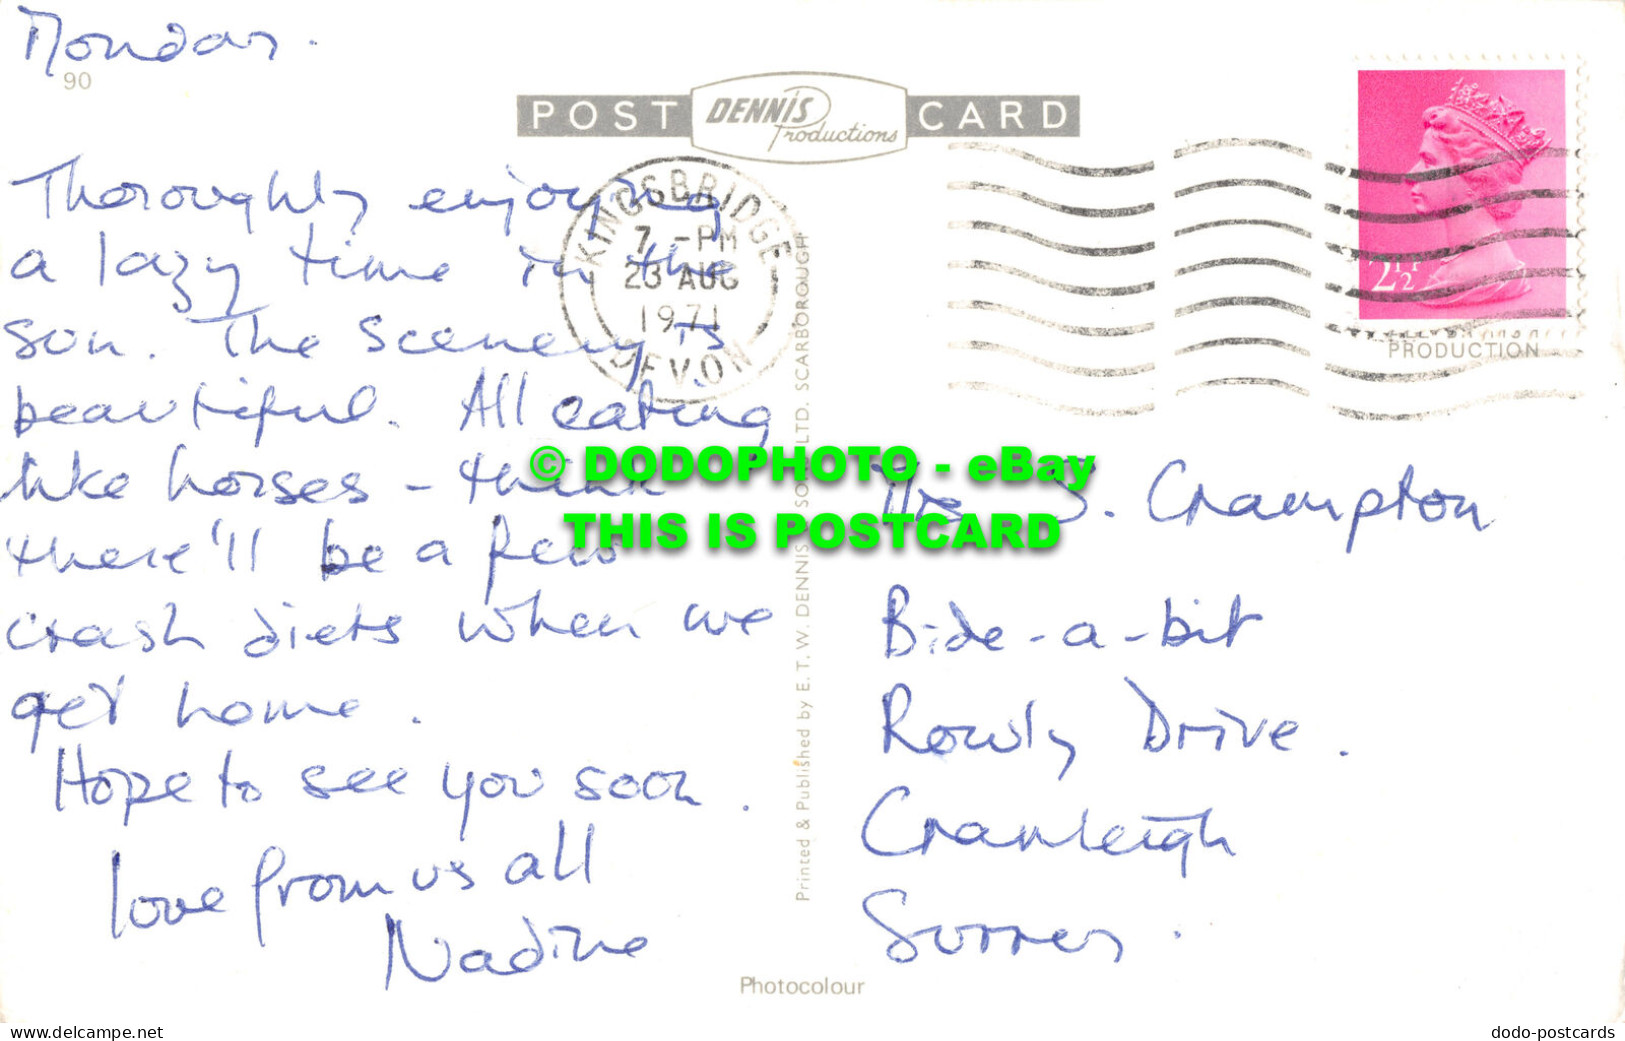 Monday.
90
POST DENNIS Productions CARD
Thoroughly enjoying
a lazy time in the
sun. The scenery is
beautiful. All eating
like horses - think
there'll be a few
crash diets when we
get home.
Hope to see you soon.
love from us all
Nadine
KINGSBRIDGE
7 - PM
23 AUG
1971
DEVON
2½P
PRODUCTION
Printed & Published by E. T. W. DENNIS & SONS LTD. SCARBOROUGH
© DODOPHOTO - eBay
THIS IS POSTCARD
Mrs S. Crampton
Bide-a-bit
Rowly Drive.
Cranleigh
Surrey.
Photocolour
www.delcampe.net
dodo-postcards